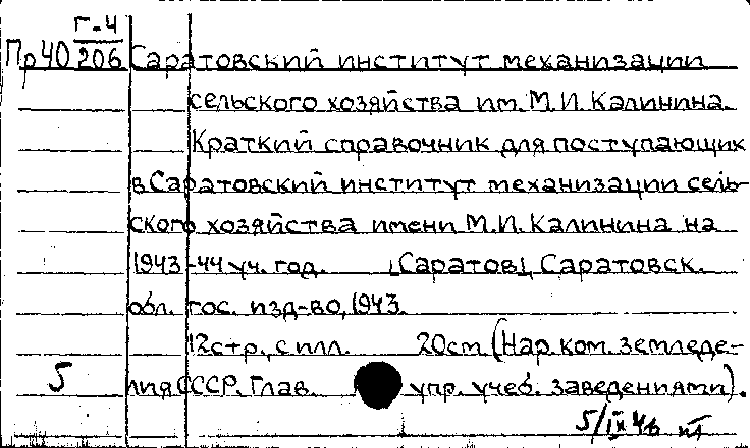 Г-4
Пр40 206 Саратовский институт механизации
сельского хозяйства им. М.И. Калинина.
Краткий справочник для поступающих
в Саратовский институт механизации сель-
ского хозяйства имени М.И. Калинина на
1943-44 уч. год. [Саратов], Саратовск.
обл. гос. изд-во, 1943.
12стр., с илл. 20см (Нар. ком. земледе-
5 лия СССР. Глав. упр. учеб. заведениями).
5/IX 46